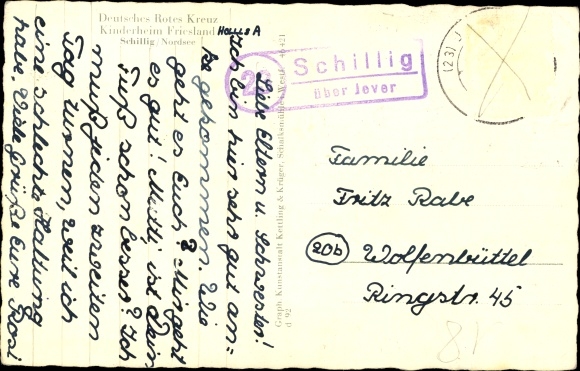 Deutsches Rotes Kreuz
Kinderheim Friesland
Schillig/Nordsee
Haus A
Liebe Eltern u. Schwester!
Ich bin hier sehr gut an=
gekommen. Wie
geht es Euch? Mir geht
es gut! Mutti, ist Dein
Fuß schon besser? Ich
muß jeden zweiten
Tag turnen, weil ich
eine schlechte Haltung
habe. Viele Grüße Eure Rosi
Graph. Kunstanstalt Kettling & Krüger, Schalksmühle
d 92
Schillig
über Jever
Familie
Fritz Rabe
20b Wolfenbüttel
Ringstr. 45
81